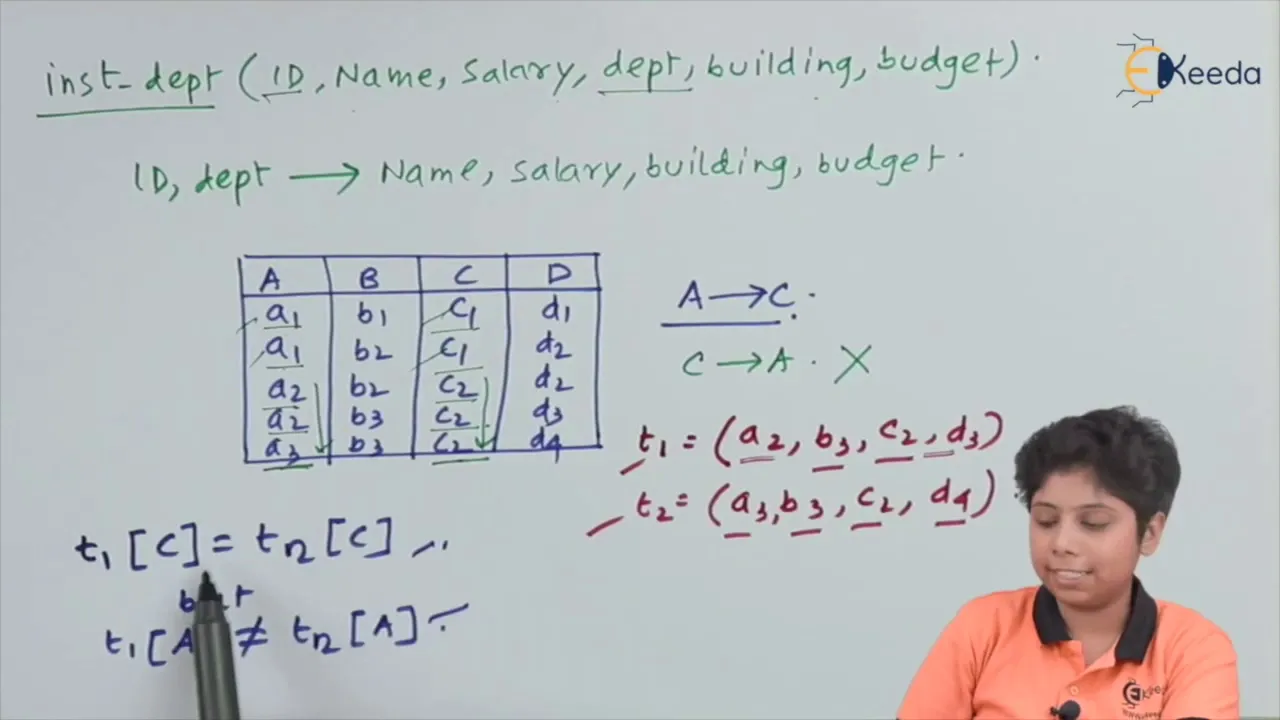 inst-dept (ID, Name, Salary, dept, building, budget).
EKeeda
ID, dept → Name, salary, building, budget.
A B C D
a1 b1 c1 d1
a1 b2 c1 d2
a2 b2 c2 d2
a2 b3 c2 d3
a3 b3 c2 d4
A → C.
C → A. X
t1 = (a2, b3, c2, d3)
t2 = (a3, b3, c2, d4)
t1[C] = t2[C]
t1[A ≠ t2[A]
EKeeda